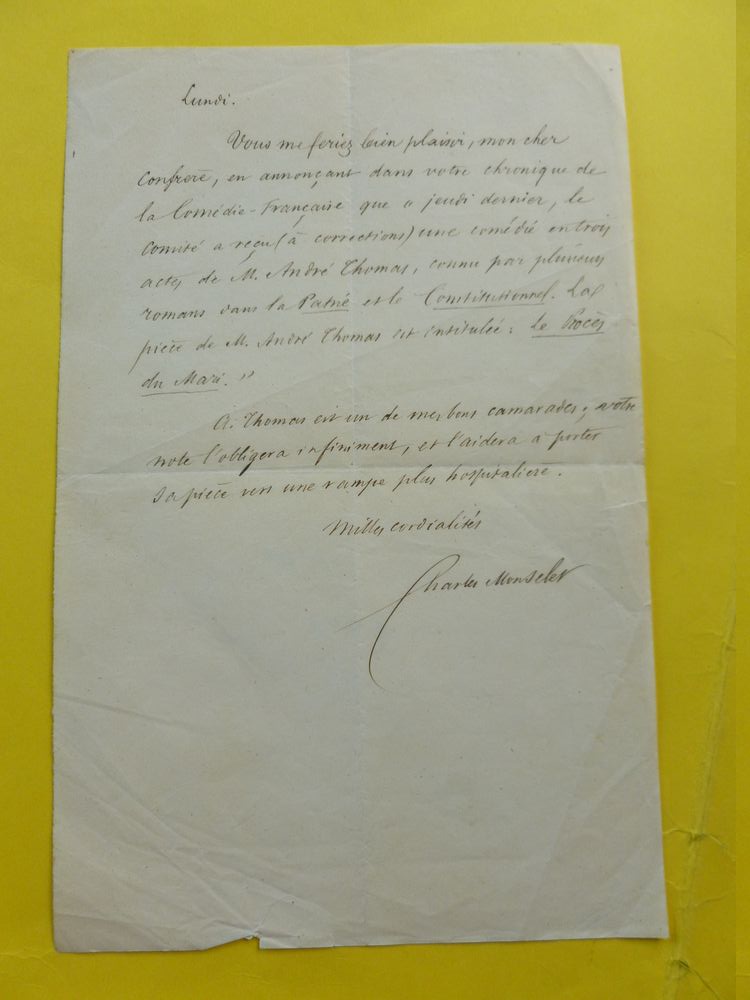 Lundi.
Vous me feriez bien plaisir, mon cher
confrere, en annonçant dans votre chronique de
la Comédie-Française que « jeudi dernier, le
Comité a reçu (à corrections) une comédie en trois
actes de M. André Thomas, connu par plusieurs
romans dans la Patrie et le Constitutionnel. La
pièce de M. André Thomas est intitulée : Le Procès
du Mari. »
A. Thomas est un de mes bons camarades ; votre
note l'obligera infiniment, et l'aidera à porter
sa pièce vers une rampe plus hospitalière.
Milles cordialités
Charles Monselet